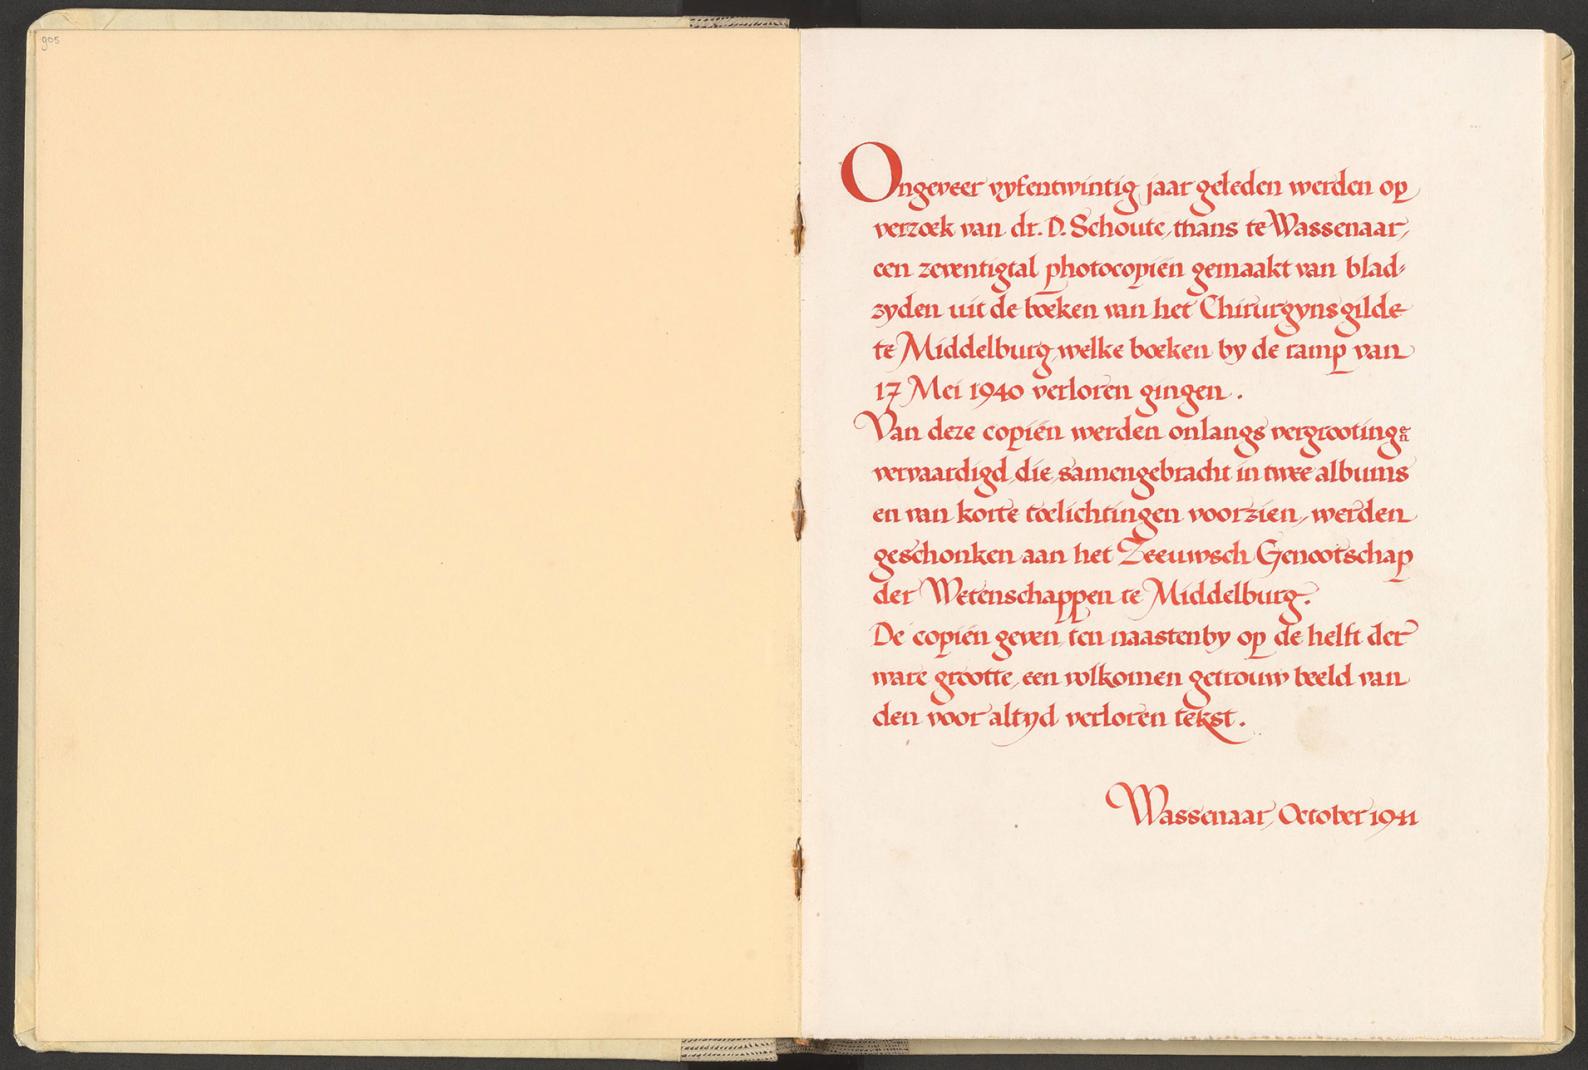 905
Ongeveer vyfentwintig jaar geleden werden op
verzoek van dr. D. Schoute, thans te Wassenaar,
een zeventigtal photocopiën gemaakt van blad-
zyden uit de boeken van het Chirurgynsgilde
te Middelburg, welke boeken by de ramp van
17 Mei 1940 verloren gingen.
Van deze copiën werden onlangs vergrootingen
vervaardigd, die, samengebracht in twee albums
en van korte toelichtingen voorzien, werden
geschonken aan het Zeeuwsch Genootschap
der Wetenschappen te Middelburg.
De copiën geven, ten naastenby op de helft der
ware grootte, een volkomen getrouw beeld van
den voor altyd verloren tekst.
Wassenaar, October 1941